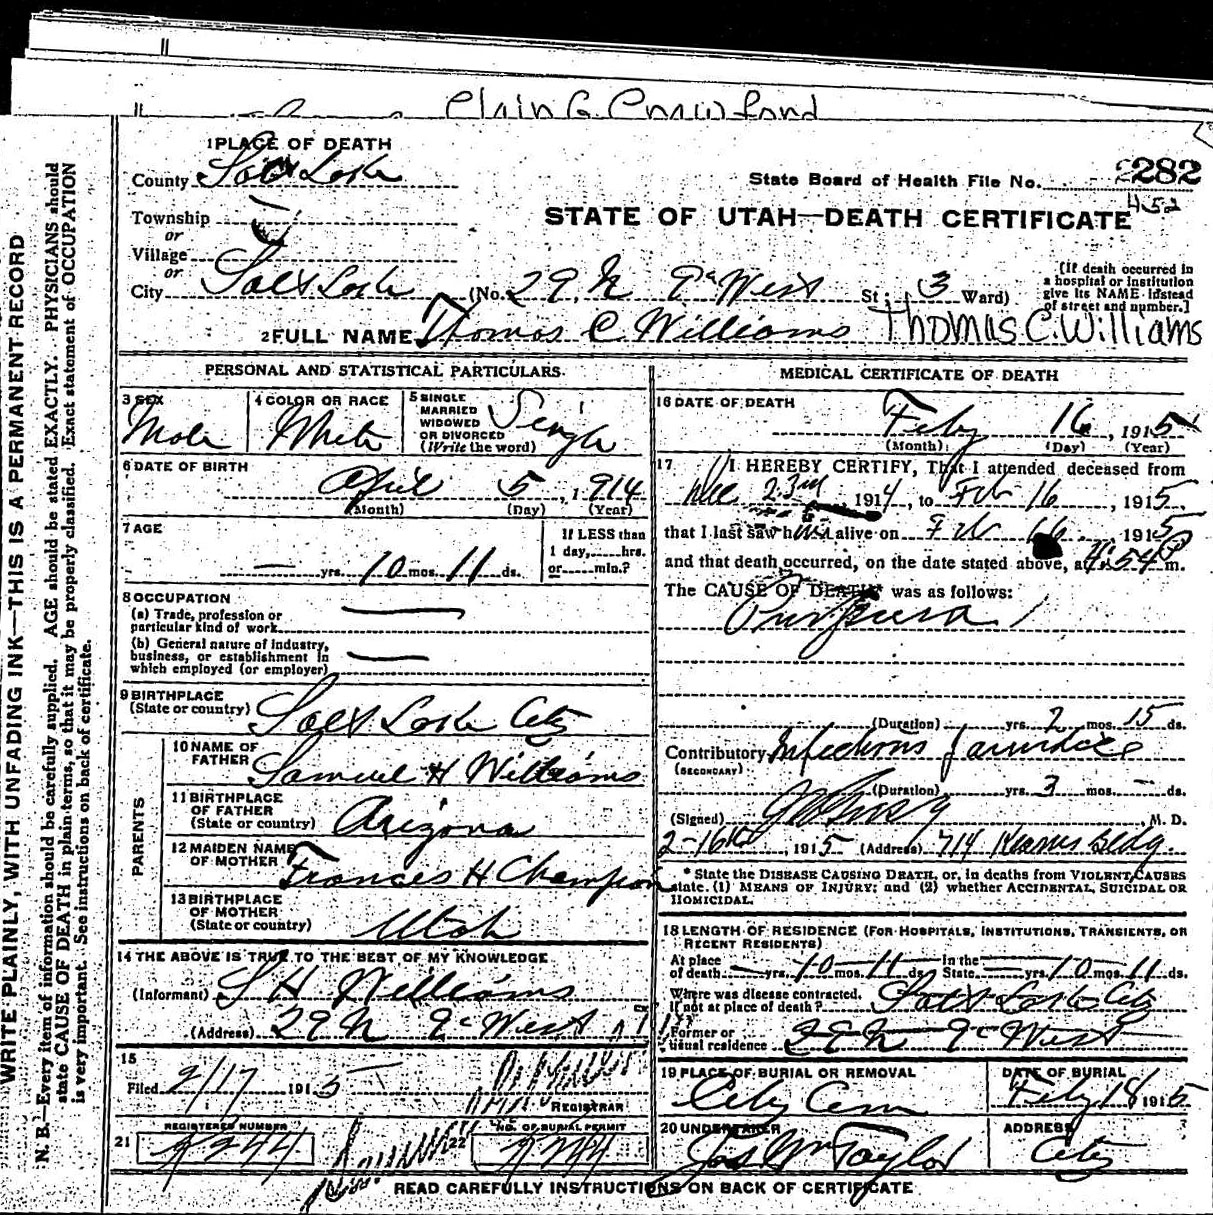 Elain G. Crawford
1 PLACE OF DEATH
County Salt Lake
State Board of Health File No. 282
452
Township
or
Village
or
City Salt Lake (No. 29 N 9th West St; 3 Ward)
STATE OF UTAH—DEATH CERTIFICATE
[If death occurred in
a hospital or institution
give its NAME instead
of street and number.]
2 FULL NAME Thomas C. Williams Thomas C. Williams
PERSONAL AND STATISTICAL PARTICULARS
3 SEX
Male
4 COLOR OR RACE
White
5 SINGLE
MARRIED
WIDOWED
OR DIVORCED
(Write the word)
Single
6 DATE OF BIRTH
April 5, 1914
(Month) (Day) (Year)
7 AGE
— yrs. 10 mos. 11 ds.
If LESS than
1 day, hrs.
or min.?
8 OCCUPATION
(a) Trade, profession or
particular kind of work —
(b) General nature of industry,
business, or establishment in
which employed (or employer) —
9 BIRTHPLACE
(State or country) Salt Lake City
PARENTS
10 NAME OF
FATHER Samuel H Williams
11 BIRTHPLACE
OF FATHER
(State or country) Arizona
12 MAIDEN NAME
OF MOTHER Frances H Champion
13 BIRTHPLACE
OF MOTHER
(State or country) Utah
14 THE ABOVE IS TRUE TO THE BEST OF MY KNOWLEDGE
(Informant) S H Williams
(Address) 29 N 9th West
15
Filed 2/17 1915
REGISTRAR
REGISTERED NUMBER
21
22
NO. OF BURIAL PERMIT
MEDICAL CERTIFICATE OF DEATH
16 DATE OF DEATH
Feby 16, 1915
(Month) (Day) (Year)
17 I HEREBY CERTIFY, That I attended deceased from
1914, to Feb 16, 1915
that I last saw him alive on Feb 16 1915
and that death occurred, on the date stated above, at 4:54 P m.
The CAUSE OF DEATH* was as follows:
Purpura
(Duration) yrs. 2 mos. 15 ds.
Contributory Infectious Jaundice
(SECONDARY)
(Duration) yrs. 3 mos. — ds.
(Signed) M. D.
2-16th, 1915 (Address) 714 Kearns Bldg.
* State the DISEASE CAUSING DEATH, or, in deaths from VIOLENT CAUSES
state (1) MEANS OF INJURY; and (2) whether ACCIDENTAL, SUICIDAL OR
HOMICIDAL.
18 LENGTH OF RESIDENCE (FOR HOSPITALS, INSTITUTIONS, TRANSIENTS, OR
RECENT RESIDENTS)
At place
of death — yrs. 10 mos. 11 ds. In the
State — yrs. 10 mos. 11 ds.
Where was disease contracted,
if not at place of death? Salt Lake City
Former or
usual residence 29 N 9th West
19 PLACE OF BURIAL OR REMOVAL
City Cem
DATE OF BURIAL
Feby 18 1915
20 UNDERTAKER
Jos Wm Taylor
ADDRESS
City
READ CAREFULLY INSTRUCTIONS ON BACK OF CERTIFICATE
WRITE PLAINLY, WITH UNFADING INK—THIS IS A PERMANENT RECORD
N. B.—Every item of information should be carefully supplied. AGE should be stated EXACTLY. PHYSICIANS should
state CAUSE OF DEATH in plain terms, so that it may be properly classified. Exact statement of OCCUPATION
is very important. See instructions on back of certificate.